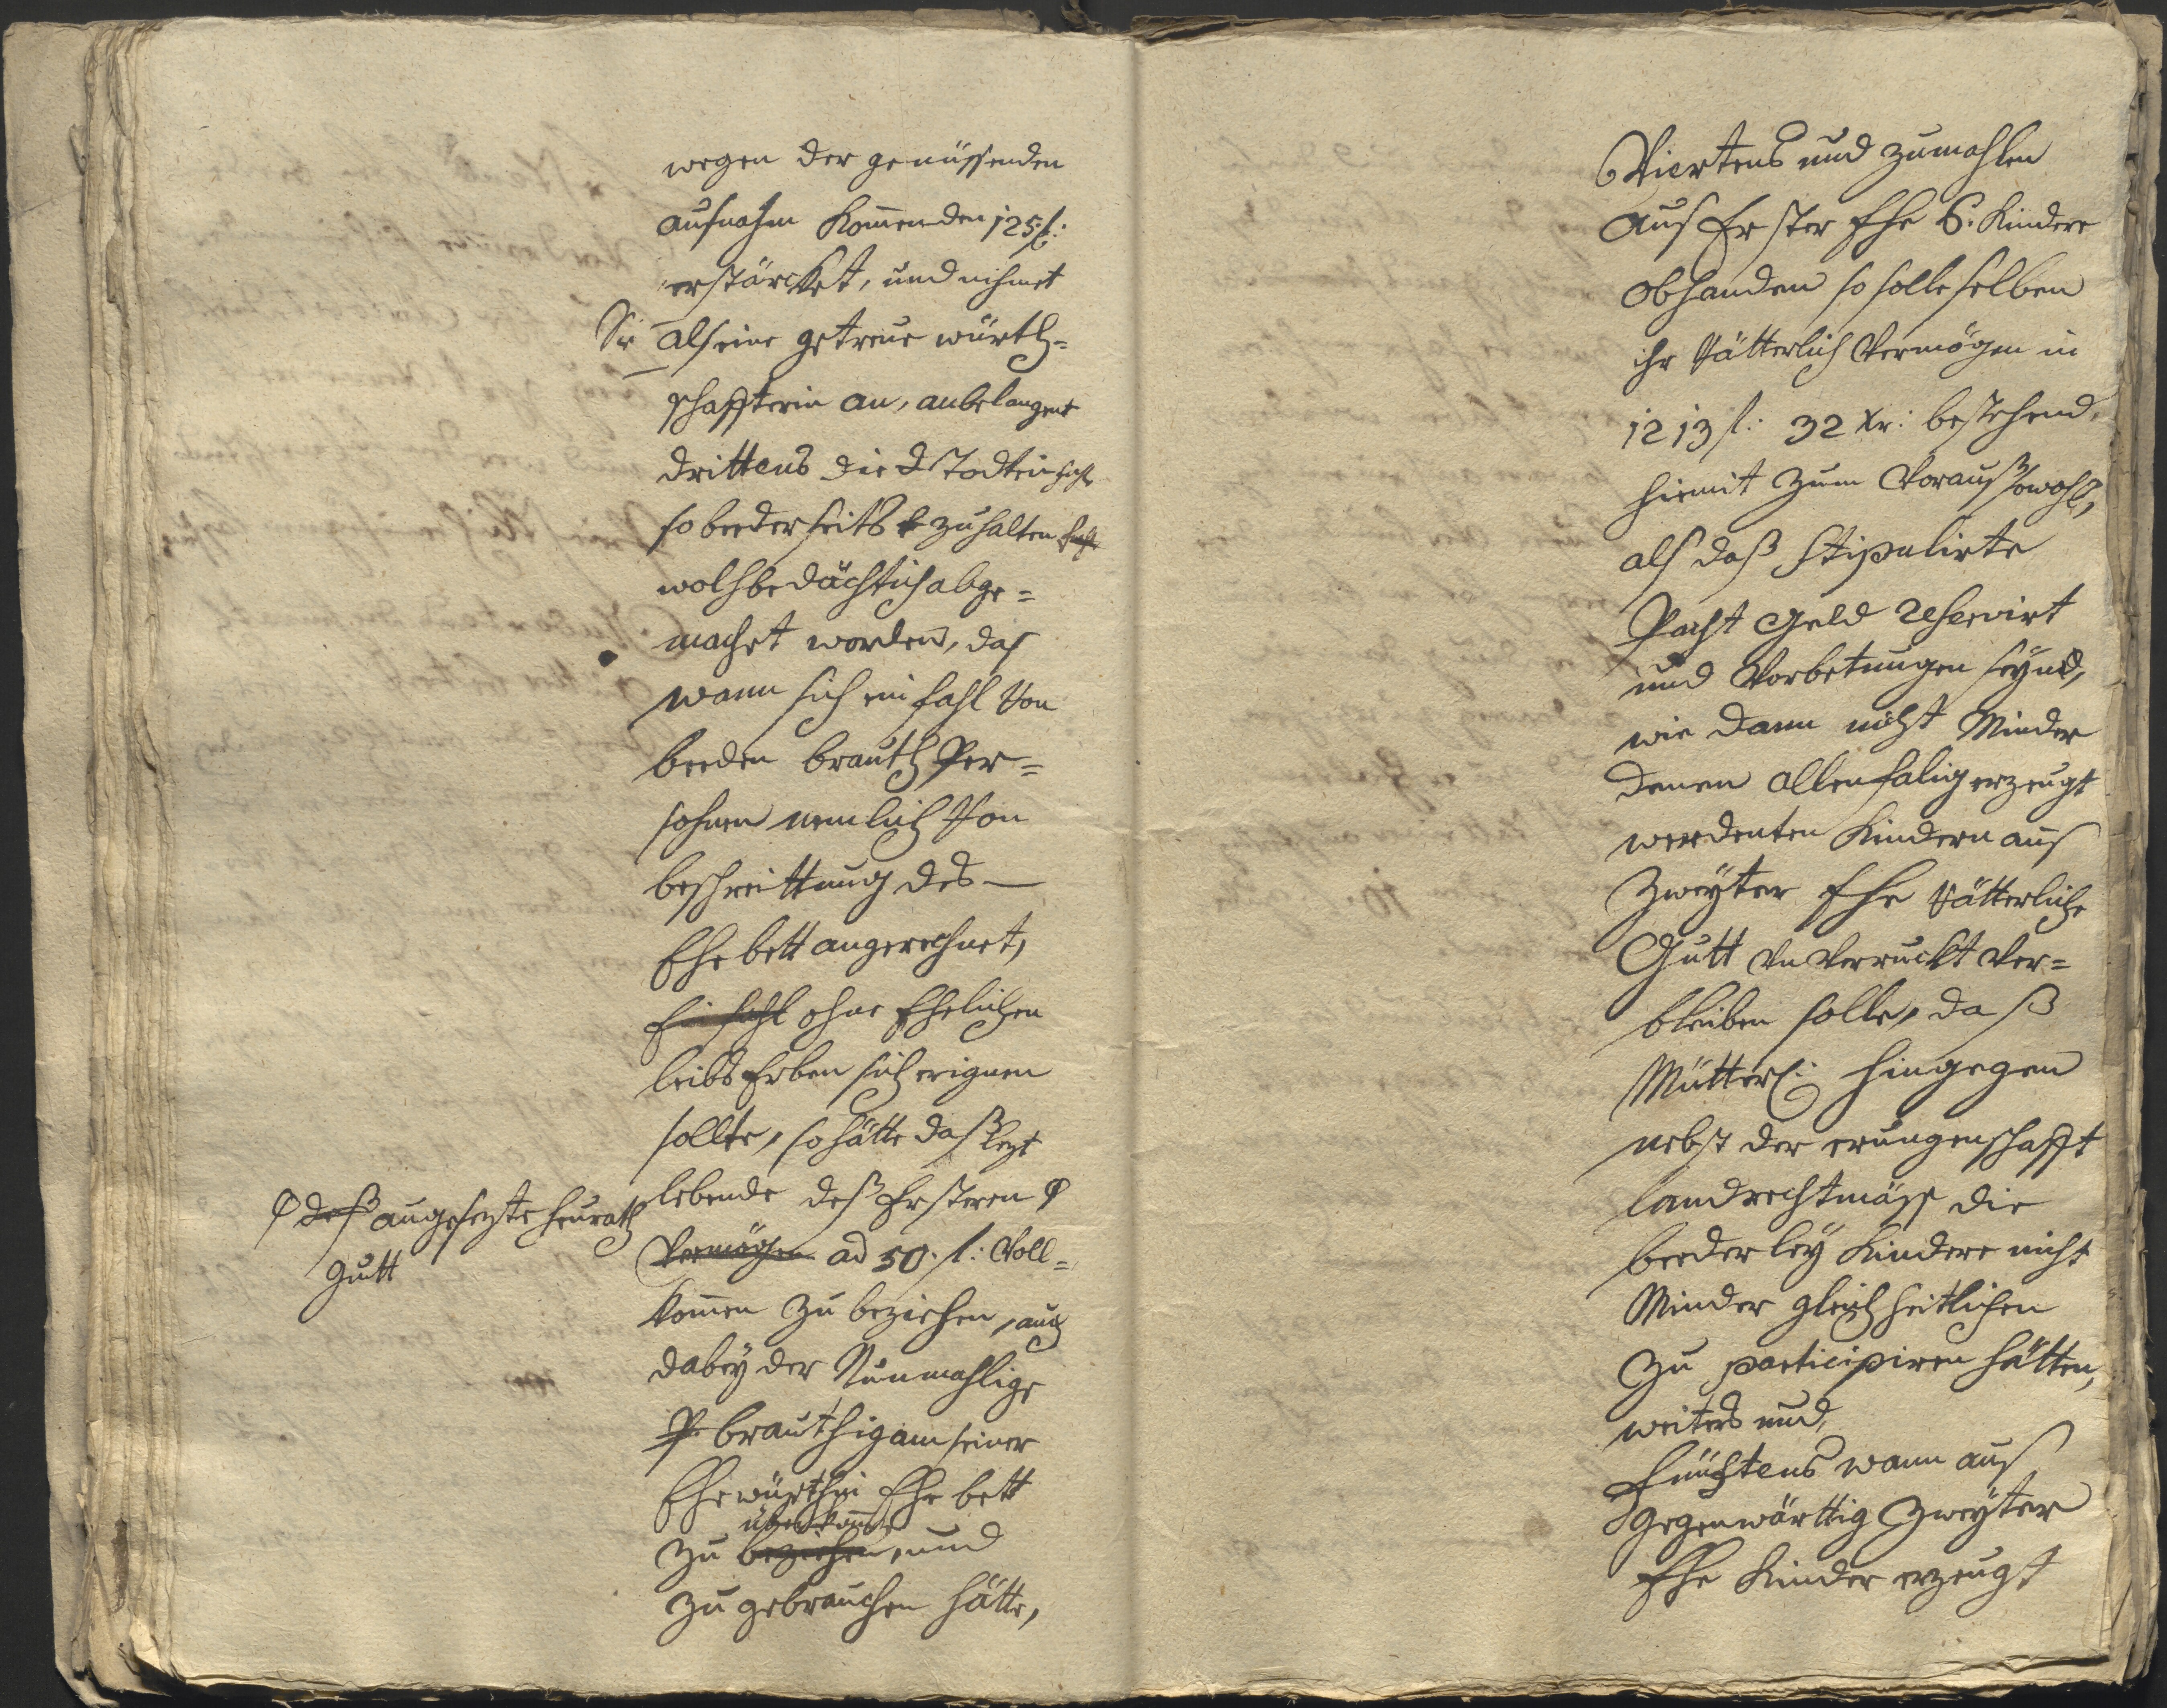 wegen der genüssenden
aufnahm komenden 125 f:
erstärcket, und nihmet
Sie als eine getreue würth=
schaffterin an, anbelangent
drittens die Todteinfahl
so beederseits zuhalten fahl
wolhbedächtlich abge=
machet worden, das
wann sich ein fahl Von
beeden brauth Per=
sohnen nemlich Von
beschreittung des
Ehebett angerechnet,
Ein fahl ohne Ehelichen
leibs Erben sich erignen
sollte, so hätte daß lezt
lebende deß Ersteren φ
φ deß angesezte heurath
gutt
Vermögen ad 50. f: Voll=
komen zu beziehen, auch
dabey der Nunmahlige
P brauthigam seiner
Ehewürthin Ehebett
überkomen
zu beziehen, und
zu gebrauchen hätte,
Viertens und zumahlen
aus Erster Ehe 6. Kindere
obhanden so solle selben
ihr Vätterlich Vermögen in
1213 f: 32 Xr: bestehend,
hiemit zum Vorauß sowohl,
als daß Stipulirte
Pacht Geld reservirt
und Vorbetungen seynd,
wie dann nicht Minder
denen allenfalig erzeugt
werdenten Kindern aus
Zweyter Ehe Vätterliche
Gutt unverruckt Ver=
bleiben solle, daß
Mütterl: hingegen
nebst der erungenschafft
landrechtmäss die
beederley Kindere nicht
Minder gleichheitlichen
zu participiren hätten,
weiters und,
Fünftens wann aus
gegenwärttig Zweyter
Ehe Kinder erzeugt